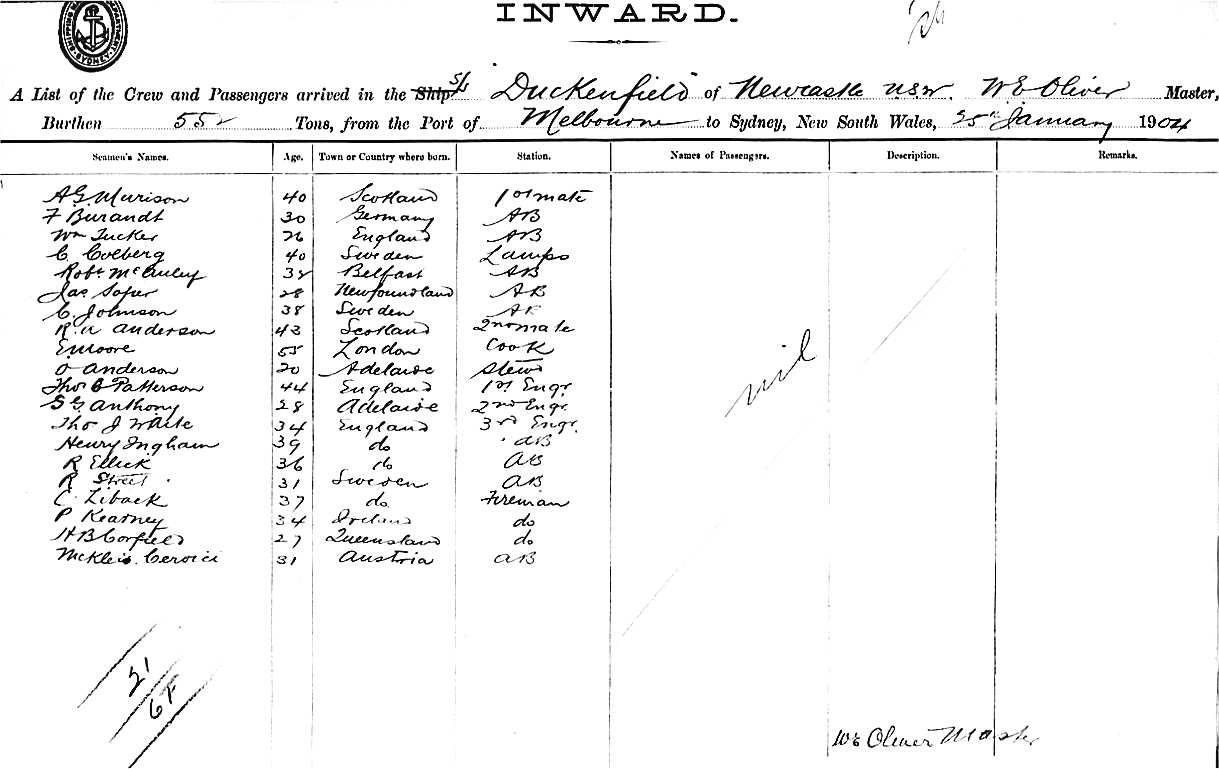 INWARD.
A List of the Crew and Passengers arrived in the Ship S/s Duckenfield of Newcastle NSW. W E Oliver Master,
Burthen 552 Tons, from the Port of Melbourne to Sydney, New South Wales, 25th January 1904
Seamen's Names. Age. Town or Country where born. Station. Names of Passengers. Description. Remarks.
A G Murison 40 Scotland 1st mate
F Burandt 30 Germany AB
Wm Tucker 26 England AB
C Colberg 40 Sweden Lamps
Robt McAuley 38 Belfast AB
Jas Soper 28 Newfoundland AB
C. Johnson 38 Sweden AB
R. A Anderson 43 Scotland 2nd mate
E Moore 55 London Cook
O Anderson 20 Adelaide Stewd
Thos C Patterson 44 England 1st Engr.
S G Anthony 28 Adelaide 2nd Engr
Tho J Waite 34 England 3rd Engr.
Henry Ingham 39 do AB
R Ellick 36 do AB
R Street 31 Sweden AB
C. Liback 37 do Fireman
P Kearney 34 Ireland do
H B Corfield 27 Queensland do
31 Austria AB
nil
21
6F
WE Oliver Master